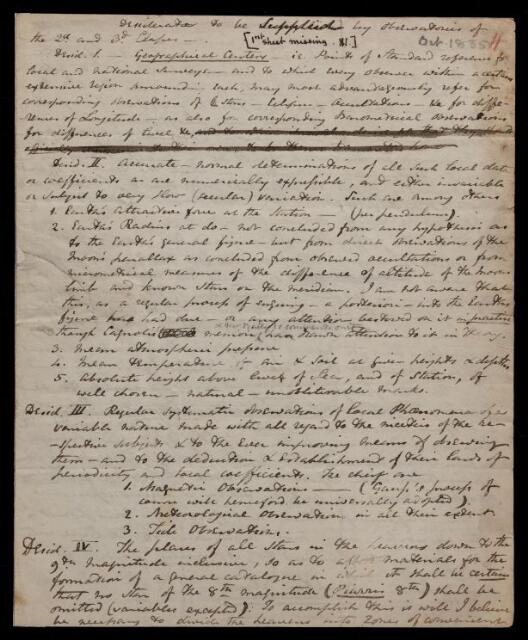 Desiderata to be Supplied by Observatories of
the 2d and 3d Classes —
[1st sheet missing. K1.]
Oct 1835
Desid. 1. — Geographical Centers — i.e. Points of Standard reference for
local and national Surveys — and to which every observer within a certain
extensive region around each, may most advantageously refer for
corresponding observations of Stars — Eclipses — occultations — &c for diffe-
rences of Longitude — as also for corresponding Barometrical observations
for differences of level &c,
Desid. II. Accurate — normal determinations of all such local data
or coefficients as are numerically expressible, and either invariable
or subject to very slow (secular) variation. Such are among others
1. Earth's attractive force at the Station — (per pendulum).
2. Earth's Radius at do — not concluded from any hypothesis as
to the Earth's general figure — but from direct observations of the
Moon's parallax as concluded from observed occultations or from
micrometrical measures of the difference of altitude of the Moons
limb and known Stars on the meridian. I am not aware that
this, as a regular process of enquiry — a posteriori — into the Earth's
figure has had due — or any attention bestowed on it in practice
though Cagnoli's memoir has drawn attention to it in theory.
3. Mean atmospheric pressure
4. Mean temperature of Air & Soil at given heights & depths
5. Absolute height above level of Sea, and of Station, of
well chosen — natural — unobliterable marks.
Desid. III. Regular systematic observations of local Phænomena of a
variable nature made with all regard to the niceties of the re-
-spective subjects & to the ever improving means of observing
them — and to the deduction & establishment of their laws of
periodicity and local coefficients. The chief are
1. Magnetic Observations — (Gauss's process of
course will henceford be universally adopted)
2. Meteorological Observation in all their extent
3. Tide Observations.
Desid. IV. The places of all Stars in the heavens down to the
9th magnitude inclusive, so as to afford materials for the
formation of a general catalogue in which it shall be certain
that no star of the 8th magnitude (Piazzi's 8th) shall be
omitted (variables excepted). To accomplish this it will I believe
be necessary to divide the heavens into Zones of convenient